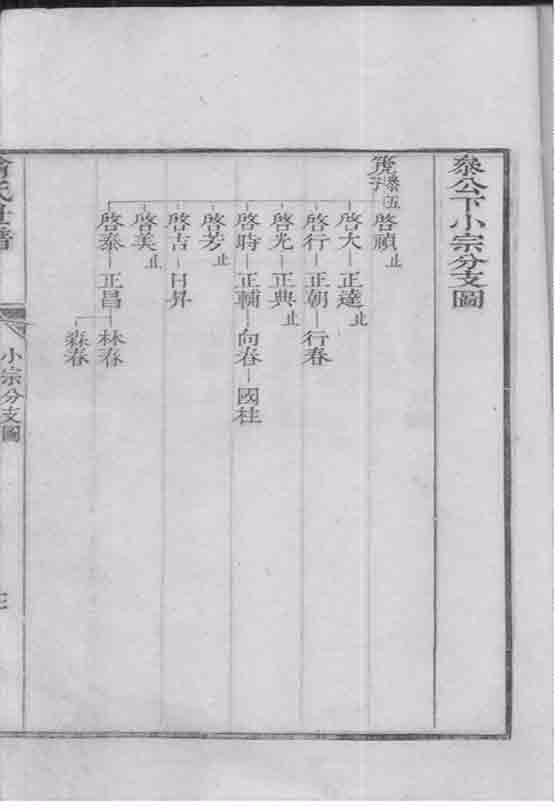 泰公下小宗分支圖
啓禎止
啓大 正達止
啓行 正朝 行春
啓光 正典止
啓時 正輔 向春 國柱
啓芳止
啓吉 日昇
啓美止
啓泰 正昌 林春
森春
氏世譜
小宗分支圖